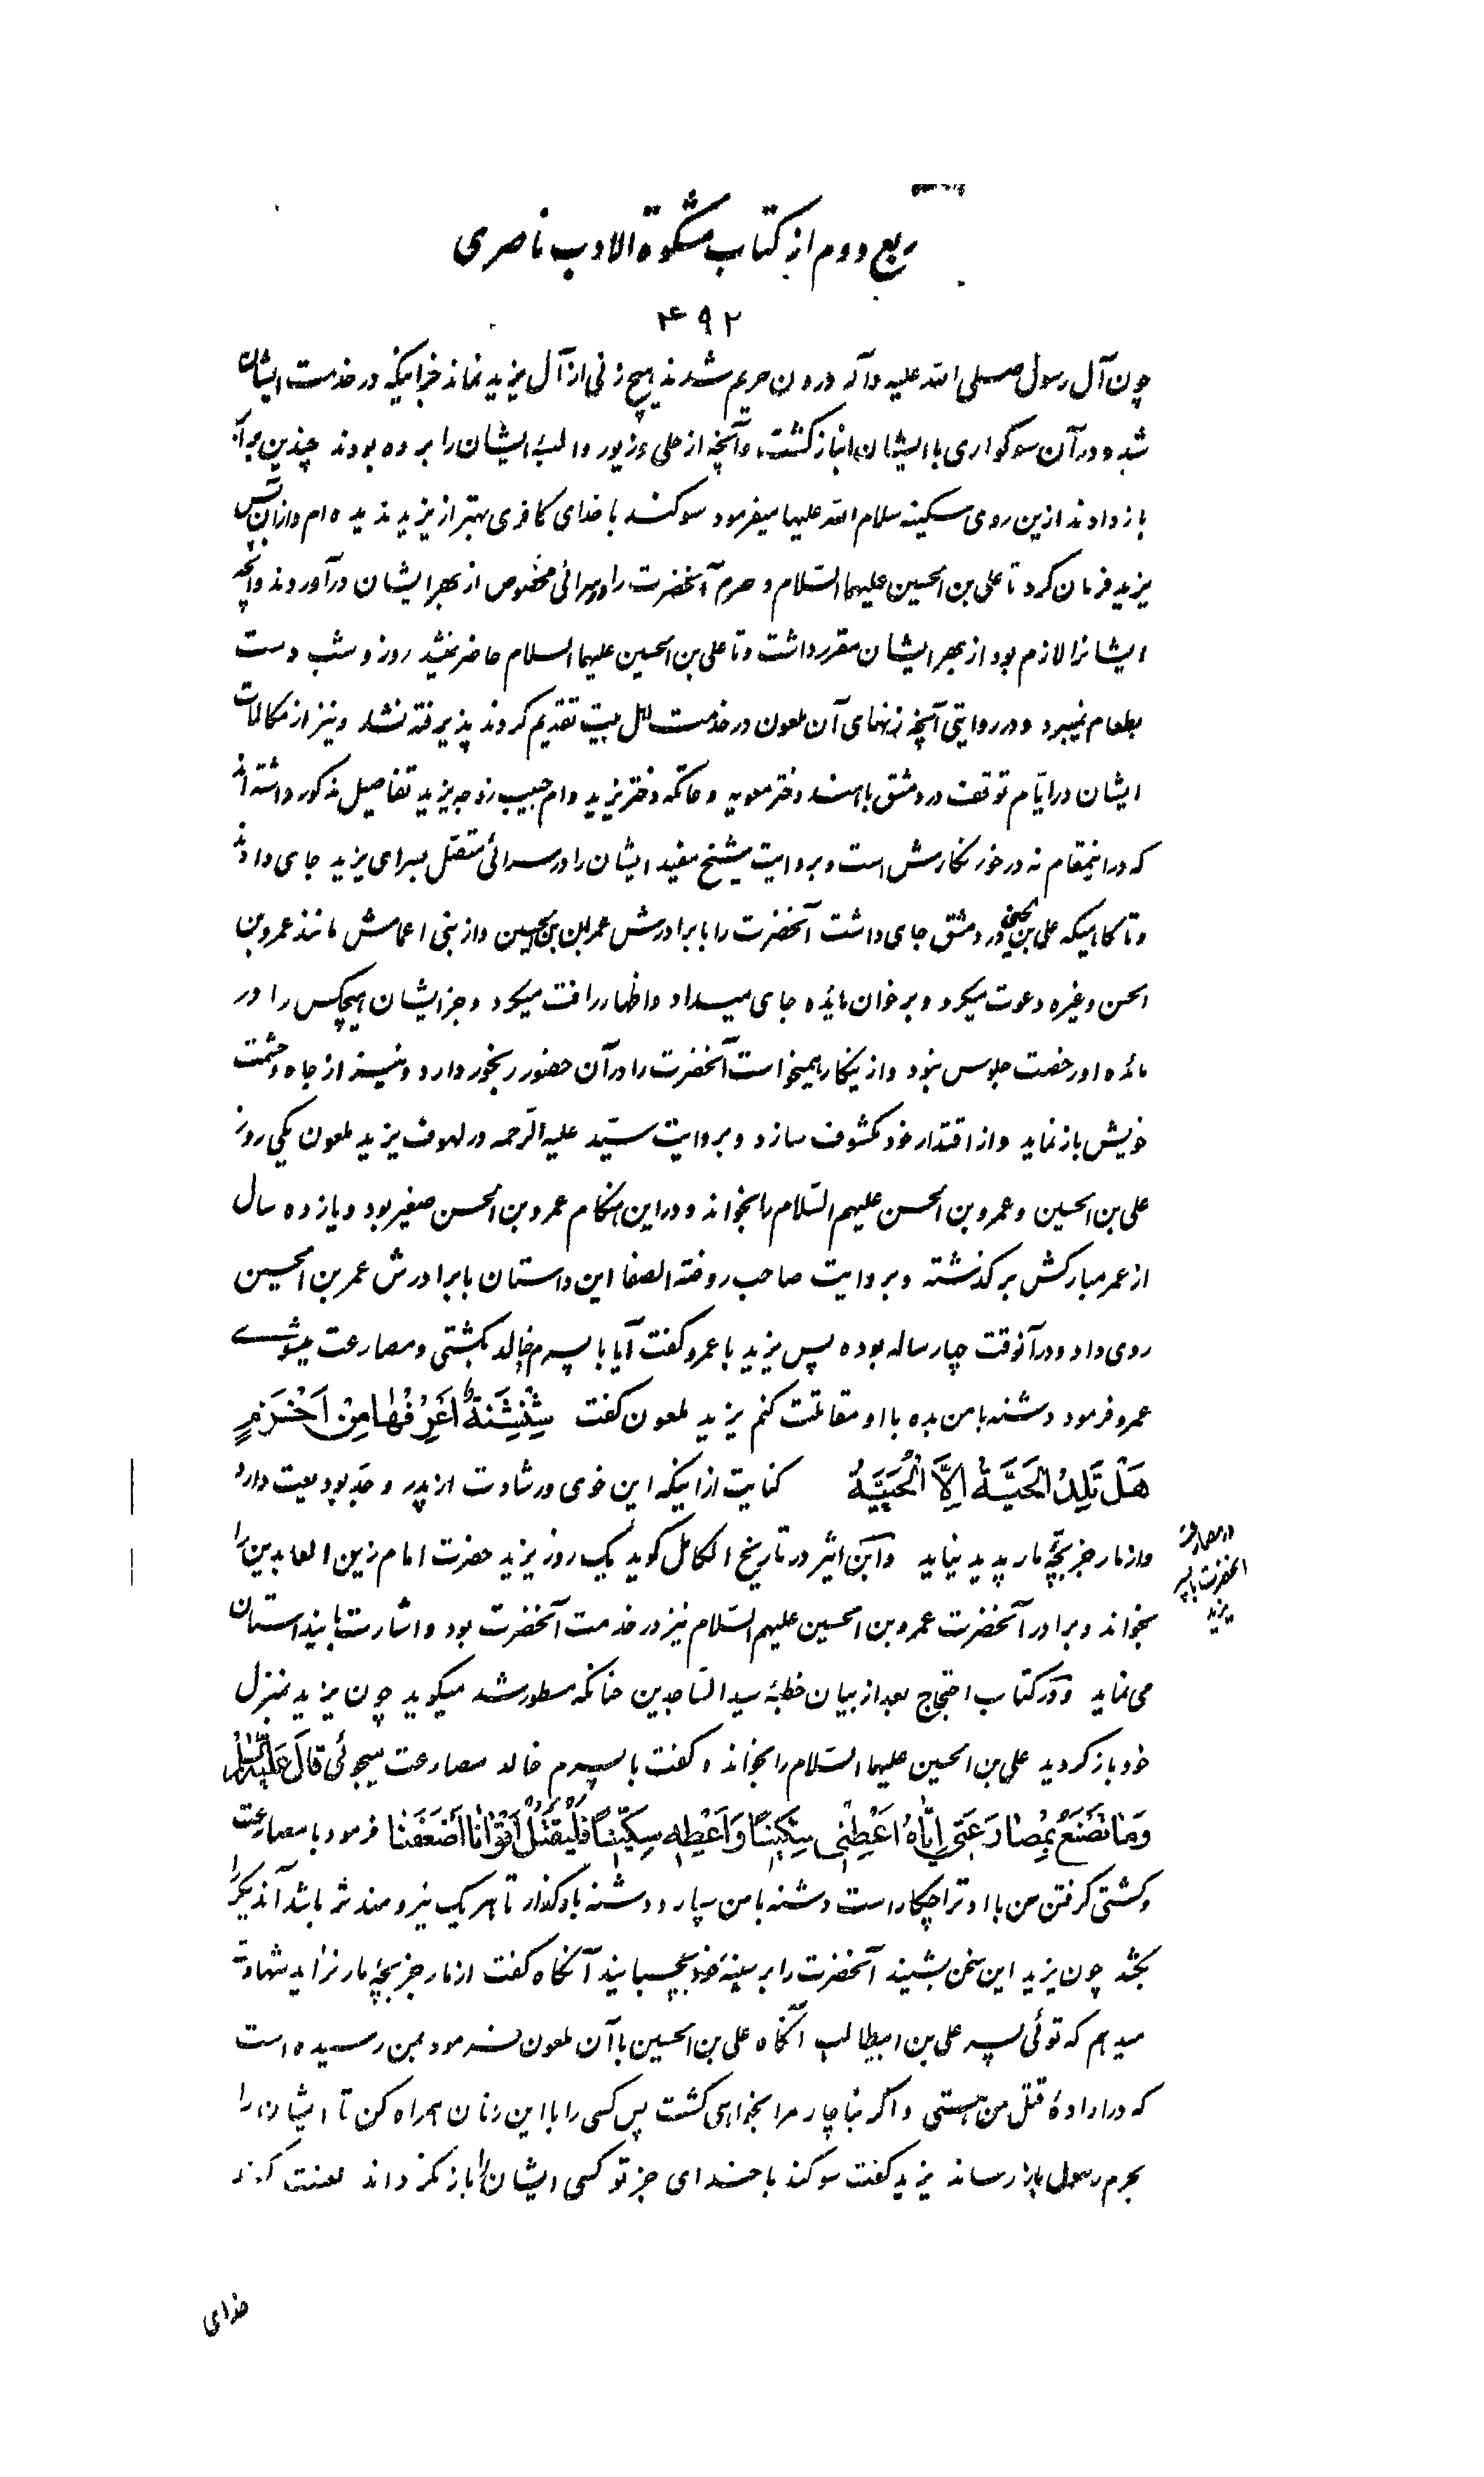 ربع دوم از کتاب مشکوة الادب ناصری
۴۹۲
چون آل رسول صلی الله علیه وآله درون حرم شدند هیچ زنی از آل یزید نماند جز اینکه در خدمت ایشان
شده و در آن سوگواری با ایشان انباز گشت، و آنچه از حلی و زیور و البسه ایشان را برده بودند چندین برابر
باز دادند ازین روی سکینه سلام الله علیها میفرمود سوگند با خدای کافری بهتر از یزید ندیده ام و از آن پس
یزید فرمان کرد تا علی بن الحسین علیهما السلام و حرم آنحضرت را در سرائی مخصوص از بهر ایشان درآوردند و آنچه
ایشانرا لازم بود از بهر ایشان مقرر داشت و تا علی بن الحسین علیهما السلام حاضر نشد روز و شب دست
بطعام نمیبرد و در روایتی آنچه زنهای آن ملعون در خدمت اهل بیت تقدیم کردند پذیرفته نشد و نیز از مکالمات
ایشان در ایام توقف در دمشق با هند دختر معویه و عاتکه دختر یزید و ام حبیب زوجه یزید تفاصیل مذکور داشته اند
که در اینمقام نه در خور نگارش است و بروایت شیخ مفید ایشان را در سرائی متصل بسرای یزید جای دادند
و تا گاهیکه علی بن الحسین در دمشق جای داشت آنحضرت را با برادرش عمر بن الحسین و از بنی اعمامش مانند عمرو بن
الحسن و غیره دعوت میکرد و بر خوان مائده جای میداد و اظهار رافت میکرد و جز ایشان هیچکس را در
مائده او رخصت جلوس نبود و از ینکار همیخواست آنحضرت را در آن حضور رنجور دارد و نیز از جاه و حشمت
خویش باز نماید و از اقتدار خود مکشوف سازد و بروایت سید علیه الرحمه در لهوف یزید ملعون یکی روز
علی بن الحسین و عمرو بن الحسن علیهم السلام را بخواند و در این هنگام عمرو بن الحسن صغیر بود و یازده سال
از عمر مبارکش بر گذشته و بروایت صاحب روضة الصفا این داستان با برادرش عمر بن الحسین
روی داد و در آنوقت چهار ساله بوده پس یزید با عمرو گفت آیا با پسرم خالد بکشتی و مصارعت میشوی
عمرو فرمود دشنه با من بده با او مقاتلت کنم یزید ملعون گفت شِنْشِنَةٌ اَعْرِفُهَا مِنْ اَخْزَمٍ
هَلْ تَلِدُ الحَيَّةُ اِلَّا الْحَيَّةُ کنایت از اینکه این خوی و رشادت از پدر و جد بودیعت دارد
و از مار جز بچه مار پدید نیاید و ابن اثیر در تاریخ الکامل گوید یک روز یزید حضرت امام زین العابدین را
بخواند و برادر آنحضرت عمرو بن الحسین علیهم السلام نیز در خدمت آنحضرت بود و اشارت باینداستان
می نماید و در کتاب احتجاج بعد از بیان خطبهٔ سید الساجدین چنانکه مسطور شد میگوید چون یزید بمنزل
خود باز گردید علی بن الحسین علیهما السلام را بخواند و گفت با پسرم خالد مصارعت میجوئی قالَ عَلَیْهِ السَّلامُ
وَمَا تَصْنَعُ بِمُصَارَعَتِی اِیَّاهُ اَعْطِنِی سِکِّینًا وَاَعْطِهِ سِکِّینًا فَلْیَقْتُلْ اَقْوَانَا اَضْعَفَنَا فرمود با مصارعت
و کشتی گرفتن من با او ترا چکار است دشنه با من سپار و دشنه باو گذار تا هر یک نیرومند تر باشد آندیگر را
بکشد چون یزید این سخن بشنید آنحضرت را بر سینهٔ خود بچسبانید آنگاه گفت از مار جز بچهٔ مار نزاید شهادت
میدهم که توئی پسر علی بن ابیطالب آنگاه علی بن الحسین با آن ملعون فرمود بمن رسیده است
که در ارادهٔ قتل من هستی و اگر بناچار مرا بخواهی کشت پس کسی را با این زنان همراه کن تا ایشان را
بحرم رسول باز رساند یزید گفت سوگند با خدای جز تو کسی ایشان را باز نگرداند لعنت کند
در مصارعت
آنحضرت با پسر
یزید
خدای